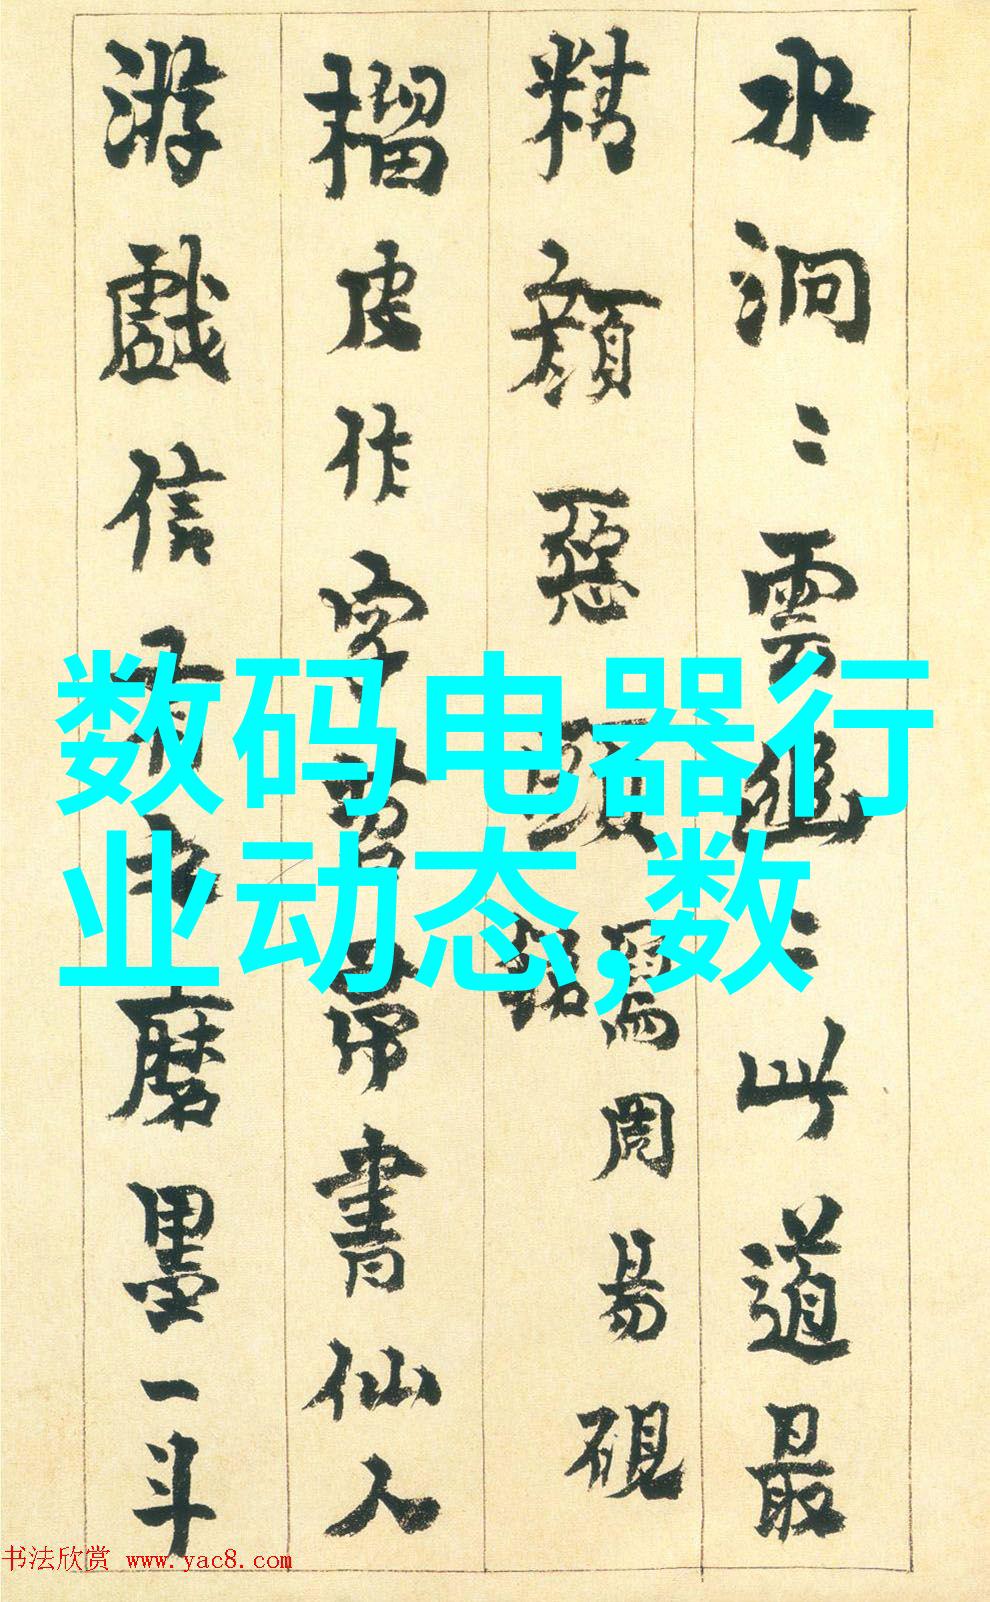 水洞〻雲遮〻此道最
精顏惡頭寫周易硯
榴皮作字苕帚書仙人
游戲信有之磨墨一斗
数码电器行
业动态,数
书法欣赏 www.yac8.com